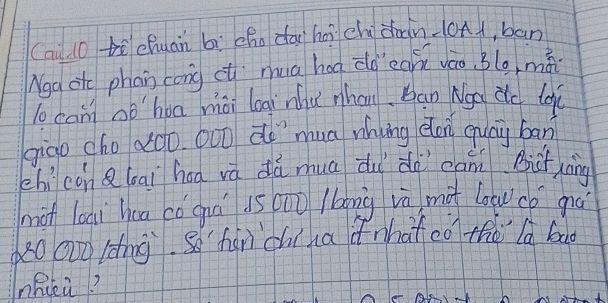 Câu 10 để chuẩn bị cho đại hội chi đoàn 10A1, bạn
Nga đc phân công đi mua hoa để cắm vào 3 lọ, mỗi
lọ cắm số hoa mỗi loại như nhau. Bạn Nga đc lớp
giao cho 200.000 để mua nhưng đến quầy bán
chỉ còn 2 loại hoa và đã mua đủ để cắm. Biết rằng
một loại hoa có giá 15 000 /bông và một loại có giá
20 000 /bông. Số tiền chi ra ít nhất có thể là bao
nhiêu?